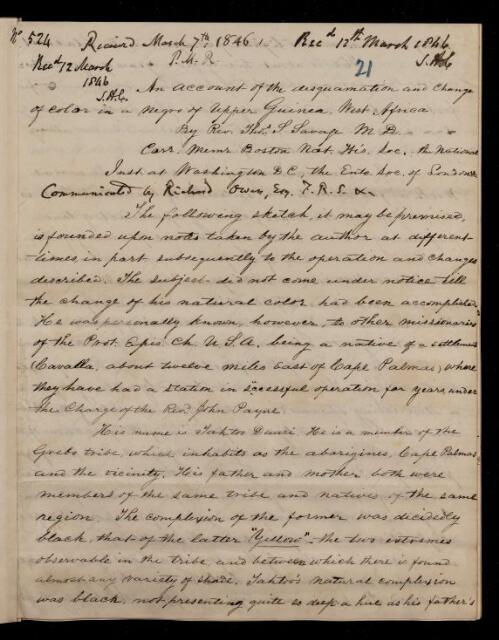 No 524 Received March 7th, 1846. Recd 12th March 1846
Recd 12 March P.M.R S.H.C
1846 21
S.H.C.
An account of the desquamation and change
of color in a negro of Upper Guinea, West Africa
By Rev. Thos. S Savage M.D.
Corr. Memr Boston Nat. His. Soc., the National
Inst. at Washington D.C., the Ento. Soc. of London &c
Communicated by Richard Owen, Esq. F.R.S. &c.
The following sketch, it may be premised,
is founded upon notes taken by the author at different
times, in part subsequently to the operation and changes
described. The subject did not come under notice till
the change of his natural color had been accomplished.
He was personally known, however, to other missionaries
of the Prot. Epis. Ch. U.S.A. being a native of a settlement
(Cavalla, about twelve miles East of Cape Palmas) where
they have had a station in successful operation for years under
the Charge of the Rev. John Payne
His name is Tahtoo Duari. He is a member of the
Grebo tribe, which inhabits as the aborigines, Cape Palmas
and the vicinity. His father and mother both were
members of the same tribe and natives of the same
region. The complexion of the former was decidedly
black, that of the latter "Yellow" - the two extremes
observable in the tribe, and between which there is found
almost any variety of shade. Tahtoo's natural complexion
was black, not presenting quite so deep a hue as his father's